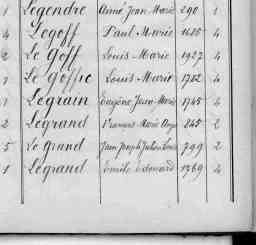 1 Legendre Aimé Jean Marie 290 1
4 Legoff Paul Marie 1685 4
2 Le Goff Louis Marie 1927 4
1 Le Goffic Louis Marie 1702 4
1 Legrain Eugène Jean Marie 1745 4
2 Legrand François Marie 845 2
5 Le Grand Jean Joseph Julien Louis 799 2
1 Legrand Emile Edouard 1769 4